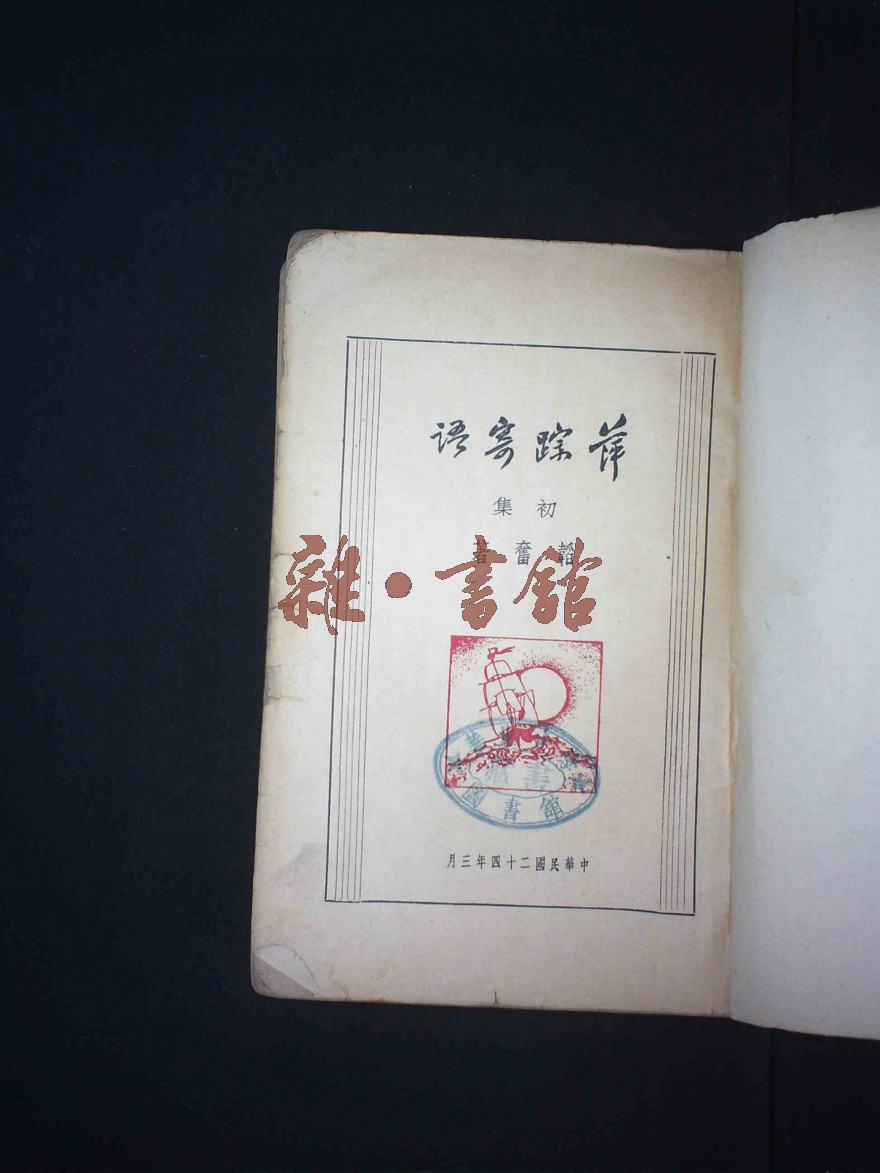 萍踪寄语
初集
韜奮著
雜·書館
藏書
書館
中華民國二十四年三月